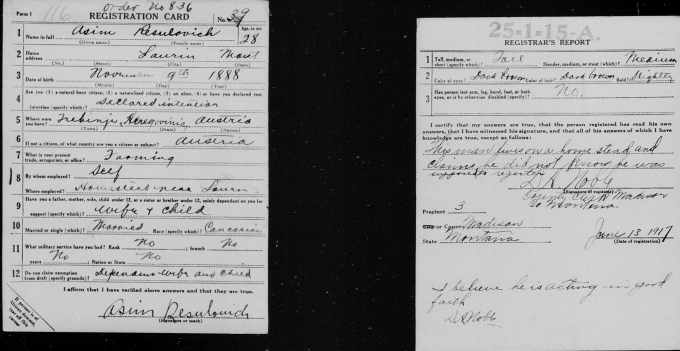 116 Order No 836
Form 1 REGISTRATION CARD No. 39
1 Name in full Asim Resulovich Age, in yrs. 28
(Given name) (Family name)
2 Home address Laurin Mont
(No.) (Street) (City) (State)
3 Date of birth November 9th 1888
(Month) (Day) (Year)
4 Are you (1) a natural-born citizen, (2) a naturalized citizen, (3) an alien, (4) or have you declared your
intention (specify which)? Declared intention
5 Where were you born? Trebinje Austria
(Town) (State) (Nation)
6 If not a citizen, of what country are you a citizen or subject? Austria
7 What is your present trade, occupation, or office? Farming
8 By whom employed? Self
Where employed? Homestead near Laurin
9 Have you a father, mother, wife, child under 12, or a sister or brother under 12, solely dependent on you for
support (specify which)? Wife & child
10 Married or single (which)? Married Race (specify which)? Caucasian
11 What military service have you had? Rank No branch No
years No Nation or State No
12 Do you claim exemption from draft (specify grounds)? Dependent wife and child
I affirm that I have verified above answers and that they are true.
Asim Resulovich
(Signature or mark)
25-1-15-A.
REGISTRAR'S REPORT
1 Tall, medium, or short (specify which)? Tall Slender, medium, or stout (which)? Medium
2 Color of eyes? Dark brown Color of hair? Dark brown Bald? Slightly
3 Has person lost arm, leg, hand, foot, or both eyes, or is he otherwise disabled (specify)? No.
I certify that my answers are true, that the person registered has read his own
answers, that I have witnessed his signature, and that all of his answers of which I have
knowledge are true, except as follows:
This man lives on a homestead and
claims he did not know he was
supposed to register
(Signature of registrar)
County Clerk Madison
Co Montana.
Precinct 3
City or County Madison
State Montana
June 13 1917
(Date of registration)
I believe he is acting in good
faith